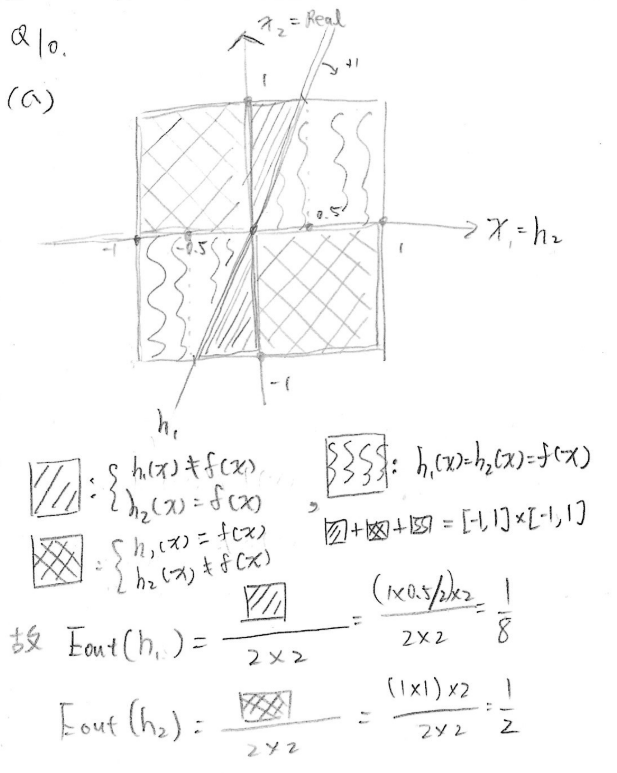 Q10.
x₂ = Real
+1
(a)
1
0.5
-1
-0.5
1
x₁ = h₂
-1
h₁
▨ : { h₁(x) ≠ f(x)
h₂(x) = f(x) ,
⸾⸾⸾ : h₁(x)=h₂(x)=f(x)
▨ + ▩ + ⸾⸾⸾ = [-1,1]×[-1,1]
▩ : { h₁(x) = f(x)
h₂(x) ≠ f(x)
故 Eout(h₁) = ▨ / 2×2 = (1×0.5/2)×2 / 2×2 = 1/8
Eout(h₂) = ▩ / 2×2 = (1×1)×2 / 2×2 = 1/2